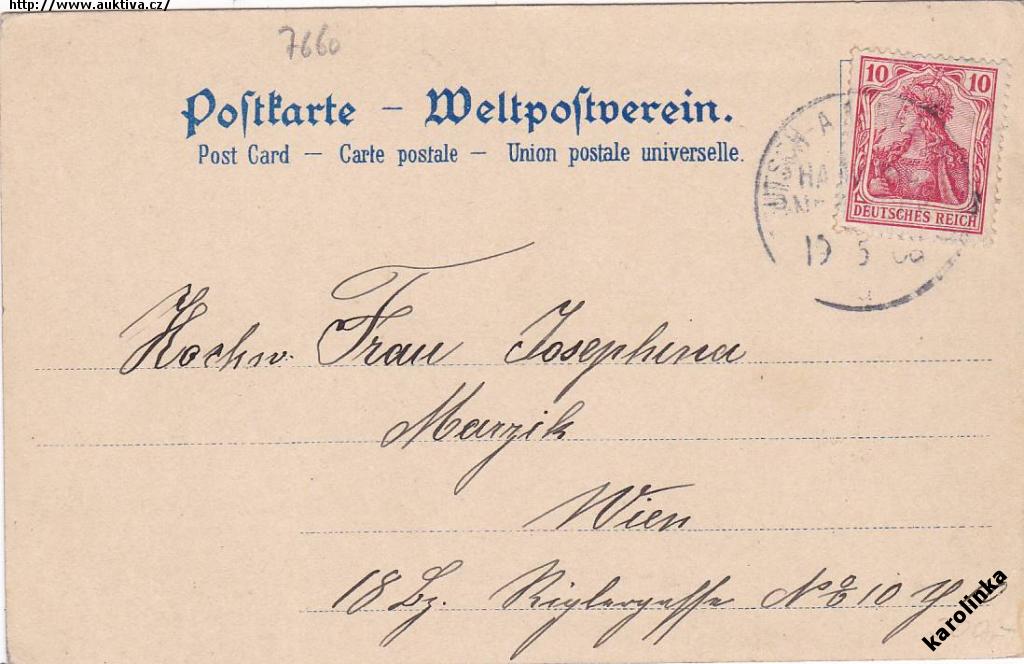 http://www.auktiva.cz/
7660
Poſtkarte – Weltpoſtverein.
Post Card – Carte postale – Union postale universelle.
10 10
DEUTSCHES REICH
Hochw. Frau Josephina
Marzik
Wien
18 Bz. Riglergasse No 10
karolinka